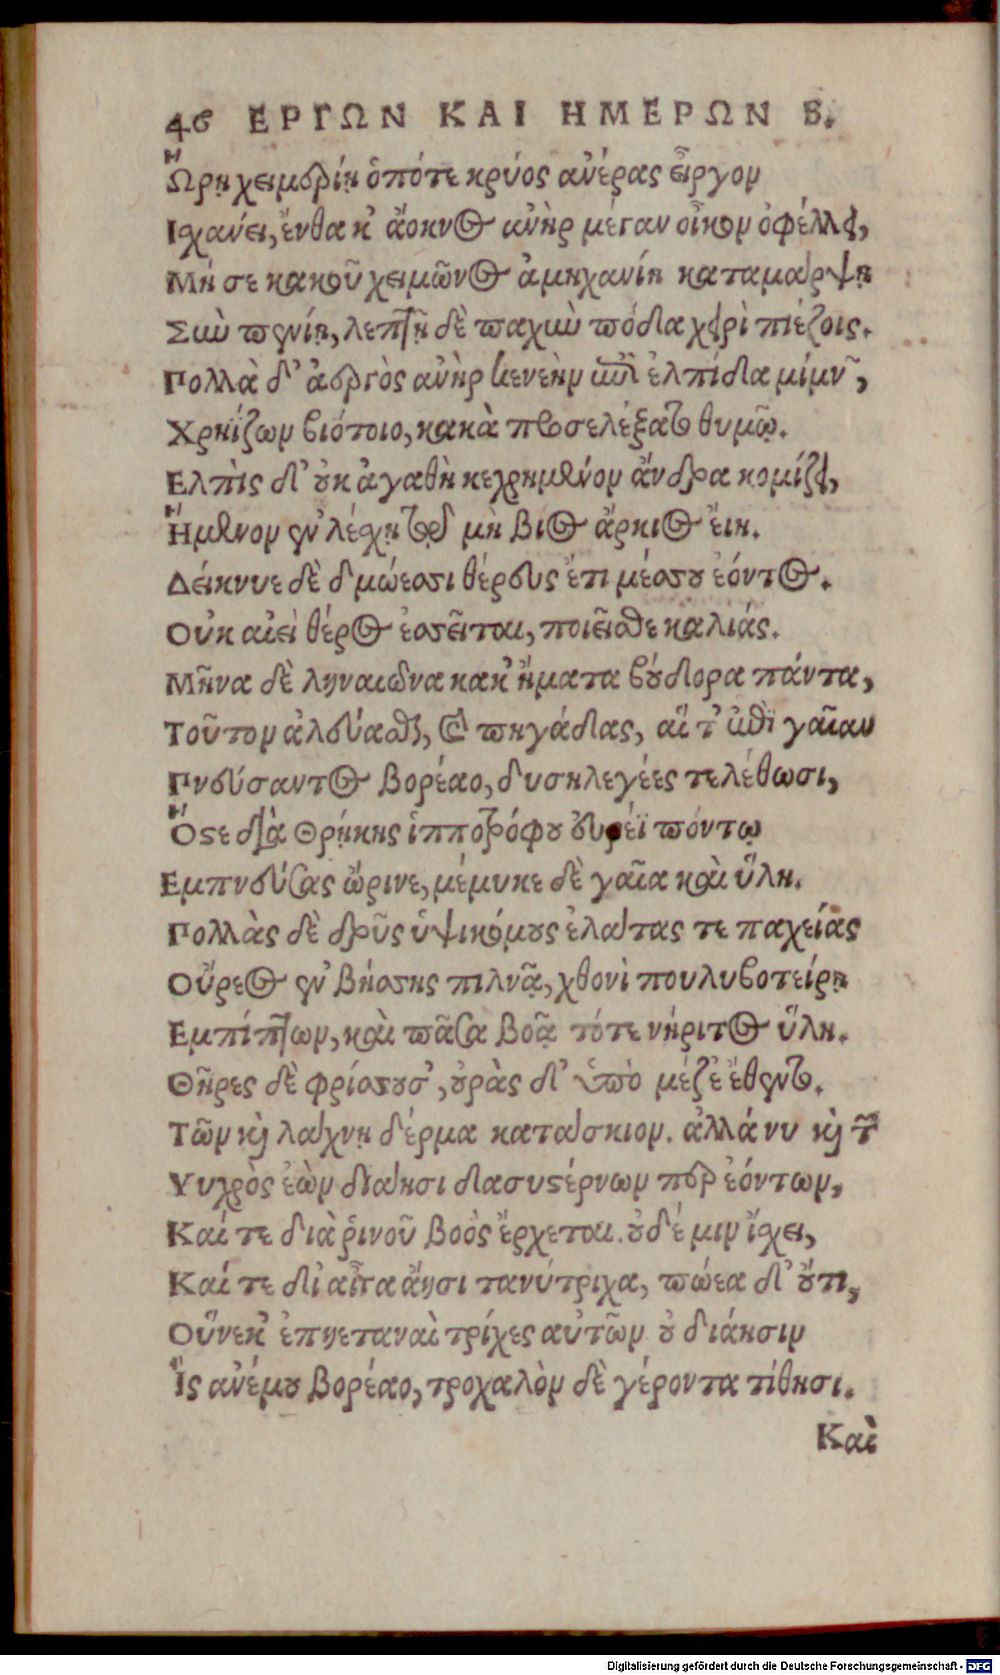 46 ΕΡΓΩΝ ΚΑΙ ΗΜΕΡΩΝ Β.
Ὥρῃ χειμερίῃ ὁπότε κρύος ἀνέρας εἶργον
Ἰχανέει, ἔνθα κ' ἄοκνος ἀνὴρ μέγαν οἶκον ὀφέλλει,
Μή σε κακοῦ χειμῶνος ἀμηχανίη καταμάρψῃ
Σὺν πενίῃ, λεπτῇ δὲ παχὺν πόδα χειρὶ πιέζοις.
Πολλὰ δ' ἀεργὸς ἀνὴρ κενεὴν ἐπὶ ἐλπίδα μίμνων,
Χρηίζων βιότοιο, κακὰ προσελέξατο θυμῷ.
Ελπὶς δ' οὐκ ἀγαθὴ κεχρημένον ἄνδρα κομίζει,
Ἥμενον ἐν λέσχῃ τῷ μὴ βίος ἄρκιος εἴη.
Δείκνυε δὲ δμώεσσι θέρευς ἔτι μέσσου ἐόντος.
Οὐκ αἰεὶ θέρος ἐσσεῖται, ποιεῖσθε καλιάς.
Μῆνα δὲ ληναιῶνα κακ' ἤματα βούδορα πάντα,
Τοῦτον ἀλεύασθαι, καὶ πηγάδας, αἵ τ' ἐπὶ γαῖαν
Πνεύσαντος βορέαο, δυσηλεγέες τελέθωσι,
Ὅστε διὰ Θρῄκης ἱπποτρόφου εὐρέϊ πόντῳ
Εμπνεύσας ὤρινε, μέμυκε δὲ γαῖα καὶ ὕλη.
Πολλὰς δὲ δρῦς ὑψικόμους ἐλάτας τε παχείας
Οὔρεος ἐν βήσσῃς πιλνᾷ, χθονὶ πουλυβοτείρῃ
Εμπίπτων, καὶ πᾶσα βοᾷ τότε νήριτος ὕλη.
Θῆρες δὲ φρίσσους', οὐρὰς δ' ὑπὸ μέζε' ἔθεντο.
Τῶν καὶ λάχνῃ δέρμα κατάσκιον. ἀλλά νυ καὶ τῶν
Ψυχρὸς ἐὼν διάησι δασυστέρνων περ ἐόντων,
Καί τε διὰ ῥινοῦ βοὸς ἔρχεται. οὐδέ μιν ἴσχει,
Καί τε δι' αἶγα ἄησι τανύτριχα, πώεα δ' οὔτι,
Οὕνεκ' ἐπηεταναὶ τρίχες αὐτῶν οὐ διάησιν
Ἲς ἀνέμου βορέαο, τροχαλὸν δὲ γέροντα τίθησι.
Καὶ
Digitalisierung gefördert durch die Deutsche Forschungsgemeinschaft - DFG